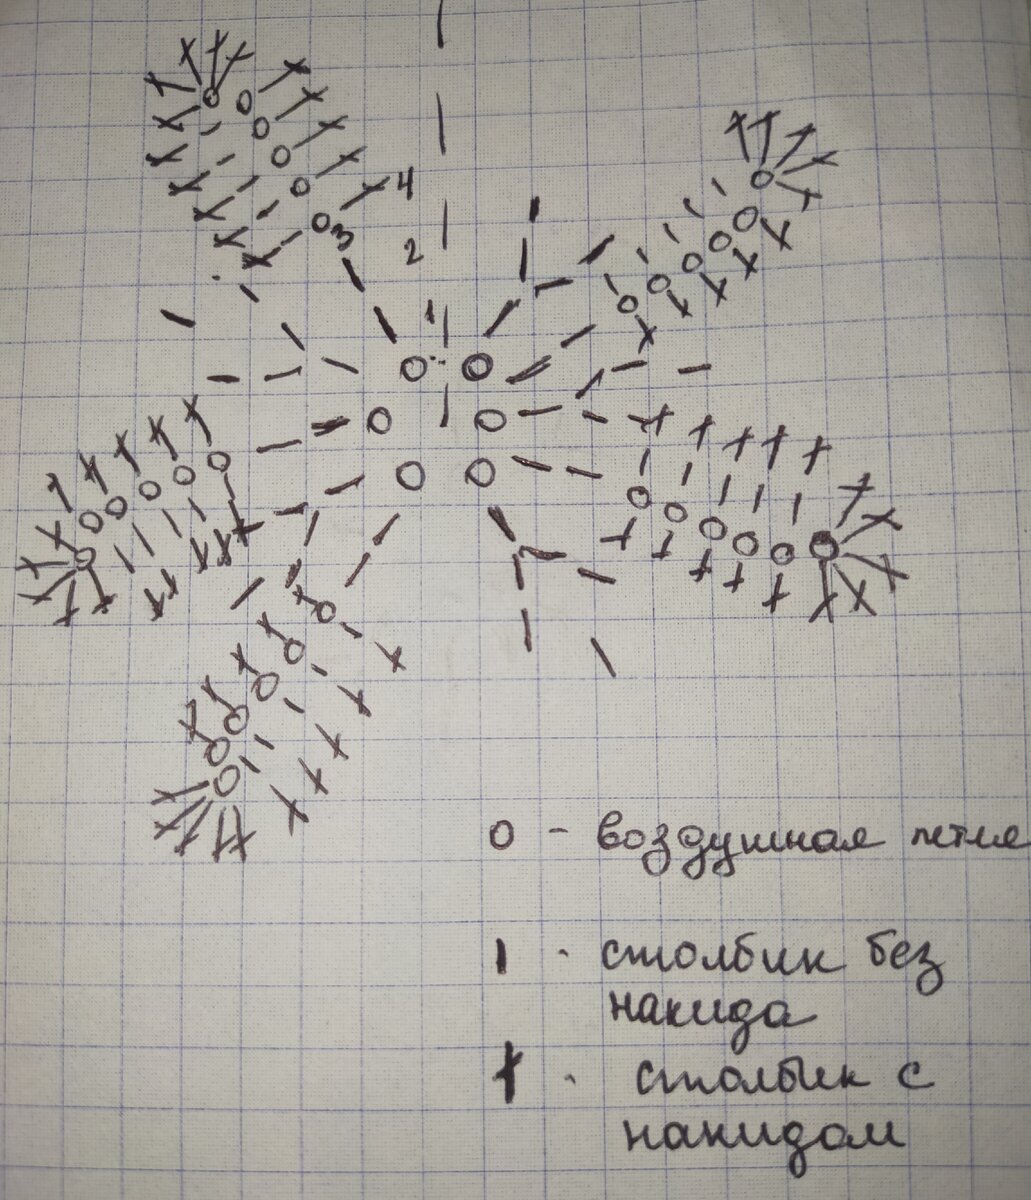 4
3
2
1
о - воздушная петля
ı - столбик без
накида
† - столбик с
накидом